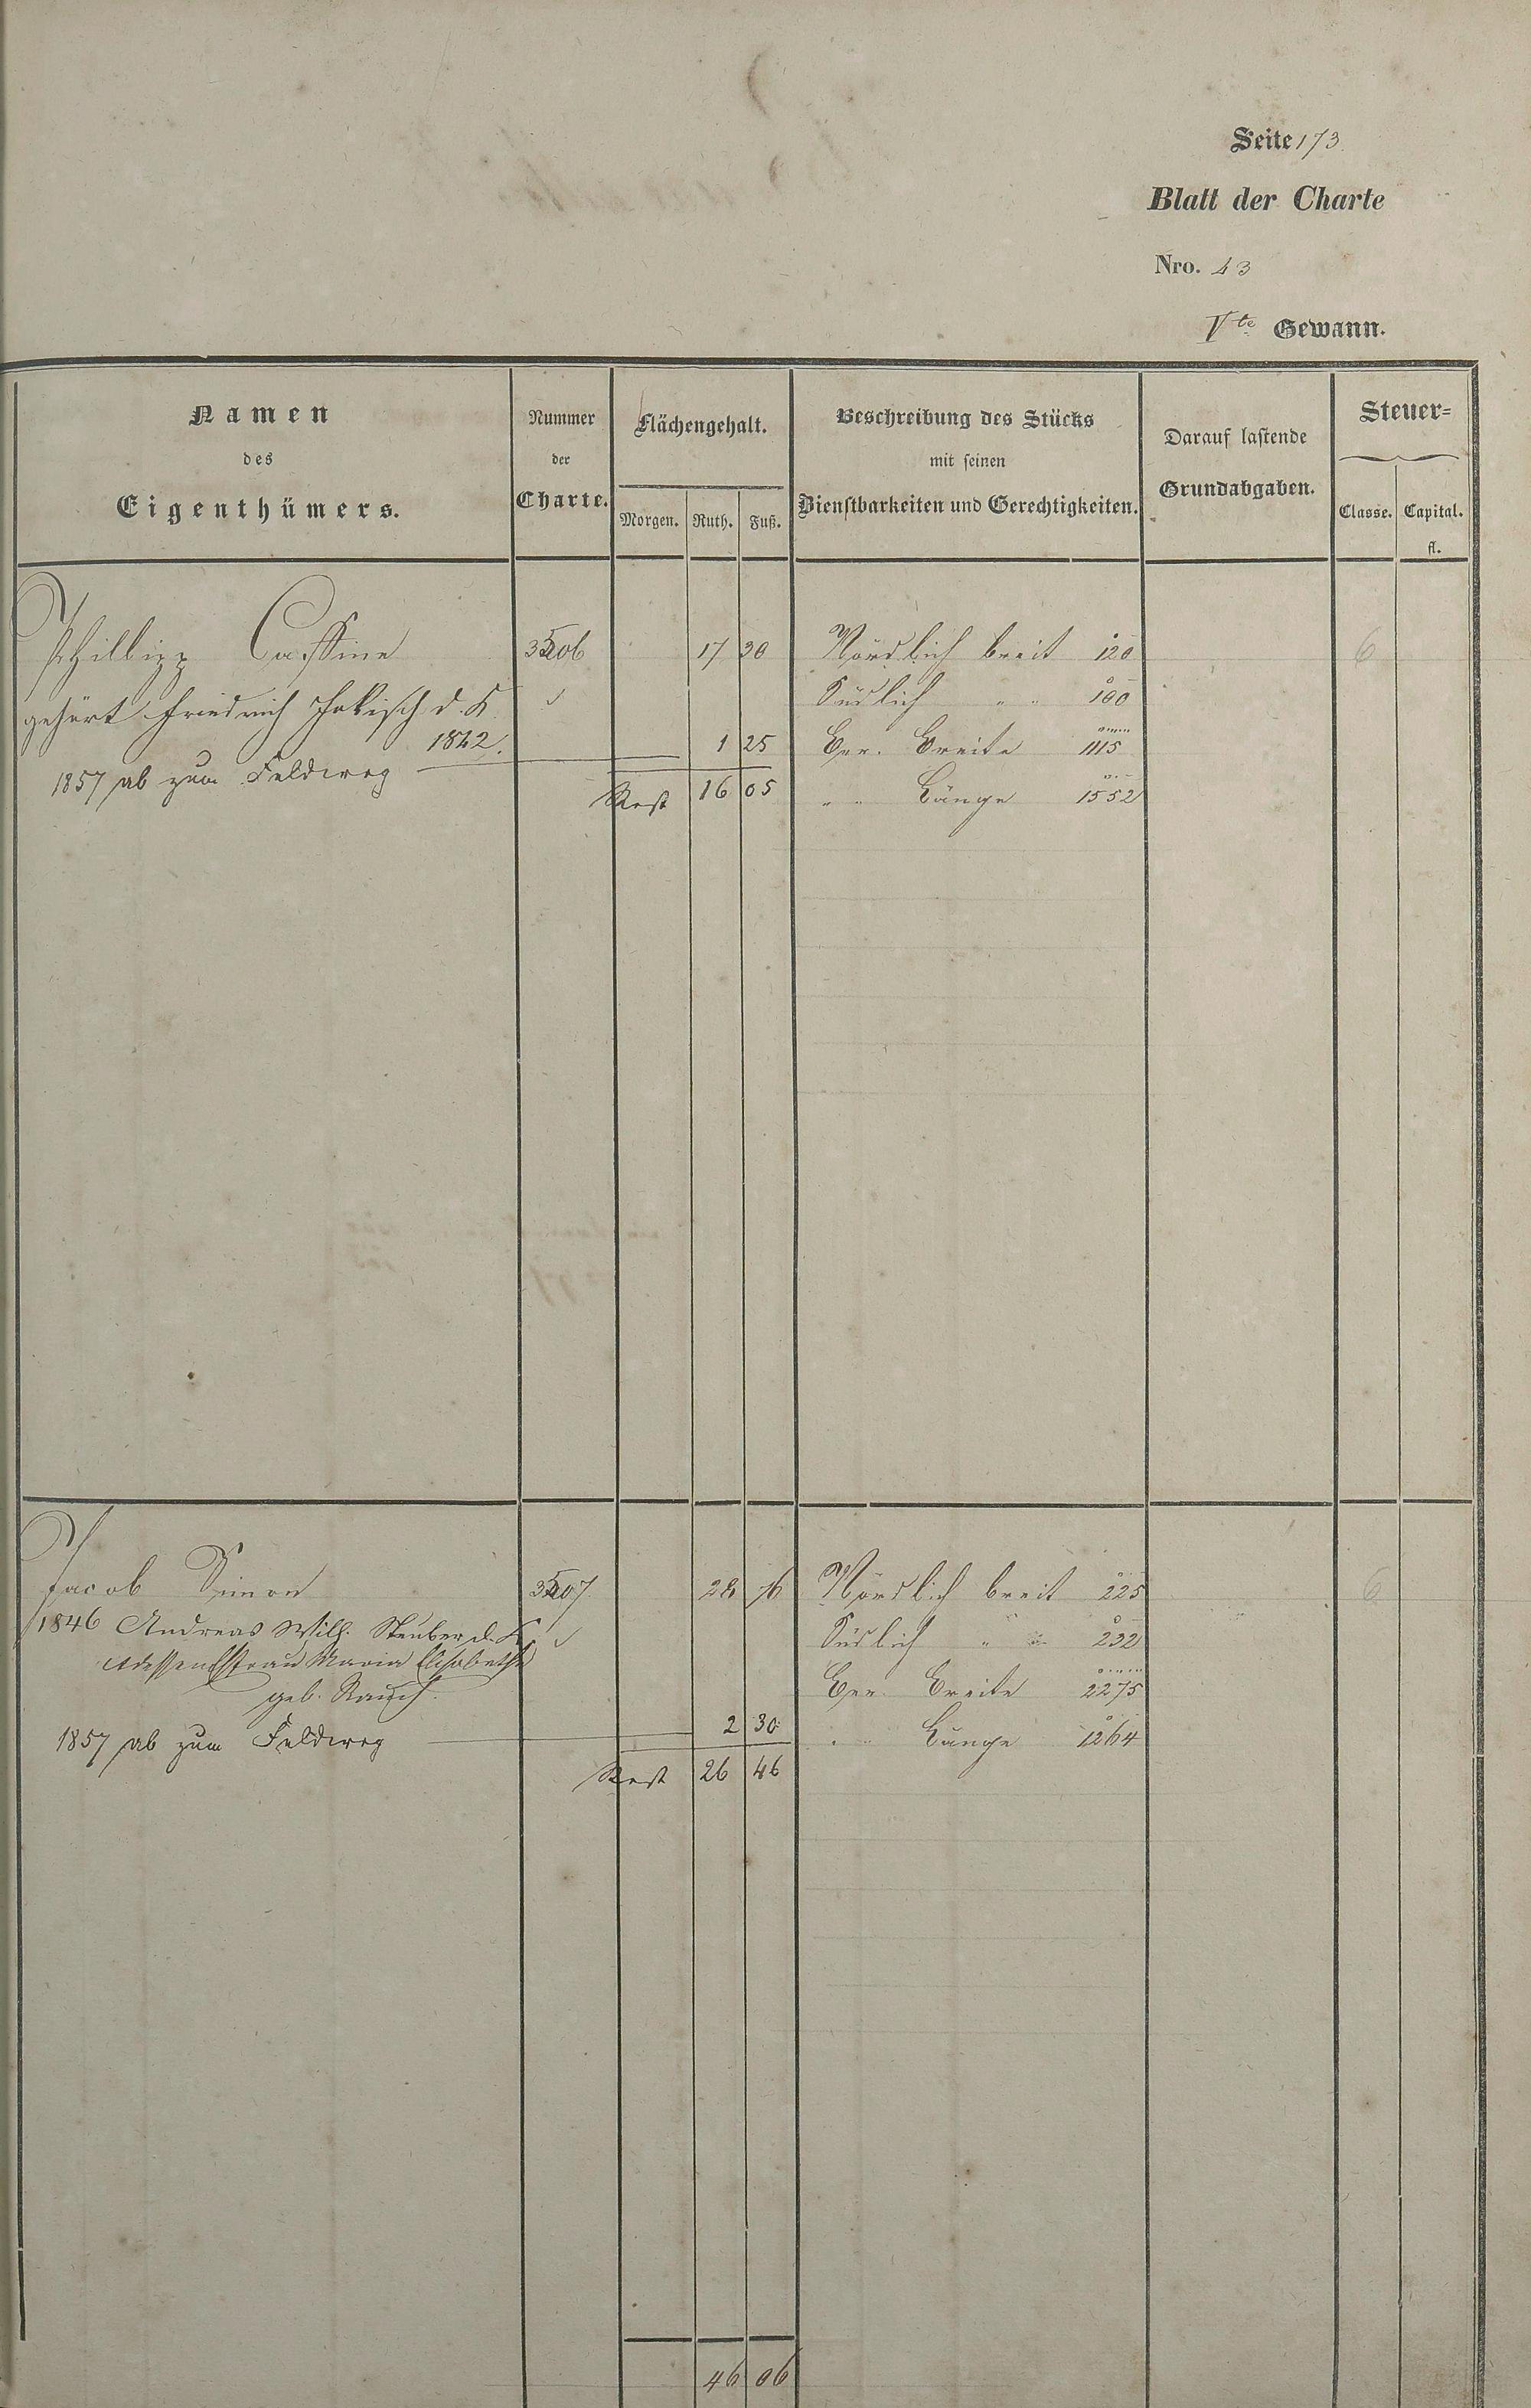 Seite 173
Blatt der Charte
Nro. 43
Vte Gewann.
Namen
des
Eigenthümers.
Nummer
der
Charte.
Flächengehalt.
Morgen. Ruth. Fuß.
Beschreibung des Stücks
mit seinen
Dienstbarkeiten und Gerechtigkeiten.
Darauf lastende
Grundabgaben.
Steuer-
Classe. Capital.
fl.
Phillipp 17 30 Nördlich breit 120 6
gehört Friedrich d. K. Südlich " " 100
1842. 1 25 Breite 1115
1857 ab zum Feldweg Rest 16 05 " " Länge 1552
Jacob Simon 28 76 Nördlich breit 225 6
1846 Andreas Wilh. Steuber d. K. Südlich " " 232
Maria Elisabetha Breite 2275
geb. Rauch.
1857 ab zum Feldweg 2 30 " " Länge 1264
Rest 26 46
46 06